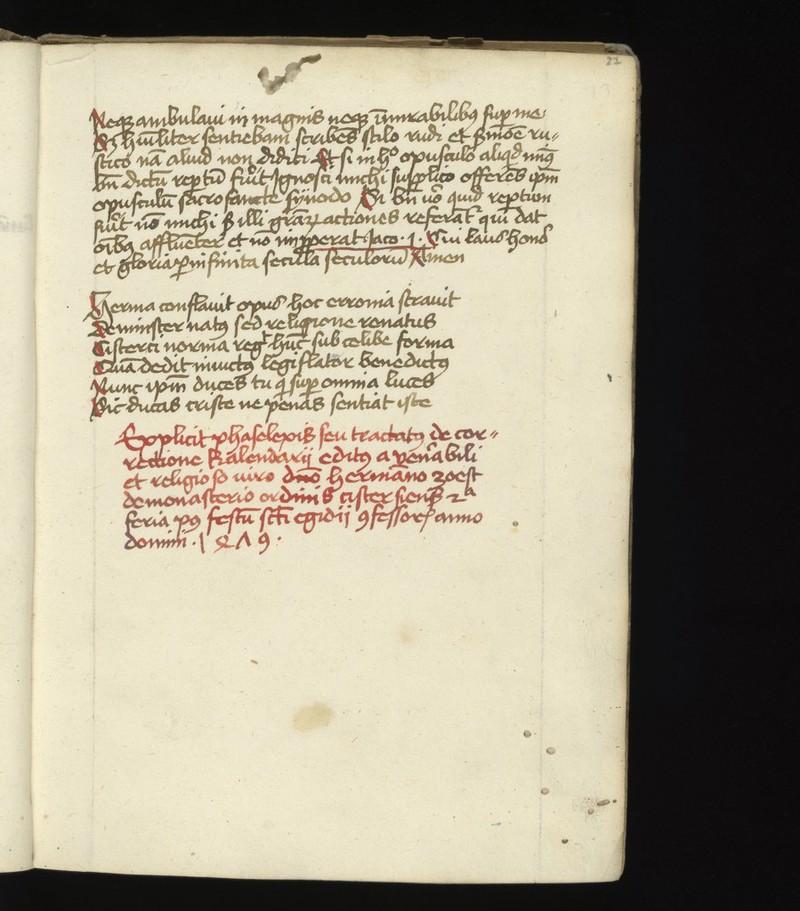 22
Neqꝫ ambulaui in magnis neqꝫ in mirabilibꝰ sup me
Sꝫ hūiliter sentiebam scribēs stilo rudi et ẜmōe ru⸗
stico nā aliud non didici Et si in hº opusculo aliqd minꝰ
bn̄ dictū reptū fuͥit Ignosci michi supplico offerēs ipm̄
opusculū sacrosancte synodo Si bn̄ uͦo quid reptum
fuͥit nō michi ẜ illi grāꝝ actiones referāt qui dat
oībꝰ affluēter et nō impꝓperat Jaco · 1 · Cui laus honoꝰ
et gloria ꝑ infinita secula seculorū Amen
Herma conflauit opus hoc erronia strauit
De minster natꝰ sed religione renatus
Cisterci norma regͭ hūc sub celibe forma
Quā dedit inuictꝰ legislator benedictꝰ
Nunc ipm̄ duces tu q̄ sup omnia luces
Sic ducas criste ne penas sentiat iste
Explicit phaselexis seu tractatꝰ de cor⸗
rectione kalendarij editꝰ a venͥabili
et religioso viro dn̄o hermāno zoest
de monasterio ordinis cistersiensꝭ 2ᵃ
feria pꝰ festū scti egidij ꝯfessorꝭ anno
domini · 1 4 Λ 9 ·